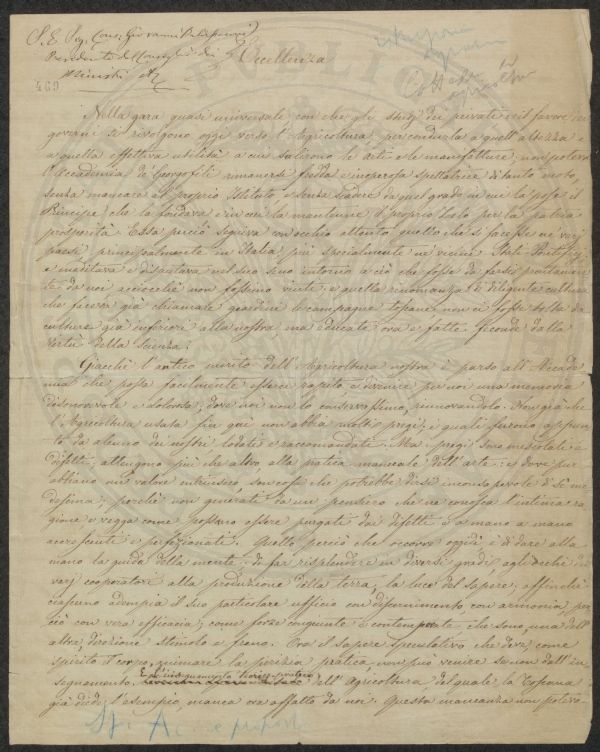 S. E. Sig. Cons. Giovanni Baldasseroni
Presidente del Consiglio dei
Ministri &c
Eccellenza
469
PUBLIC
Nella gara quasi universale con che gli studj dei privati e il favore dei
governi si rivolgono oggi verso l'Agricoltura per condurla a quell'altezza e
a quella effettiva utilità a cui salirono le arti e le manifatture, non poteva
l'Accademia de' Georgofili rimanersi fredda e inoperosa spettatrice di tanto moto,
senza mancare al proprio Istituto e senza scadere da quel grado in cui la pose il
Principe, che la fondava e in cui la mantenne di proprio Lato per la patria
prosperità. Essa perciò seguiva con occhio attento quello che si facesse ne' varj
paesi principalmente in Italia più specialmente ne' vicini Stati Pontificj
e meditava e disputava nel suo seno intorno a ciò che fosse da farsi prontamen-
te da noi acciocchè non fossimo vinti e quella rinomanza di diligente cultura
che faceva già chiamare giardini le campagne toscane, non ci fosse tolta da
culture già inferiori alla nostra ma educate ora e fatte feconde dalla
virtù della Scienza.
Giacchè l'antico merito dell'Agricoltura nostra è parso all'Accade-
mia che possa facilmente esserci rapito e divenire per noi una memoria
disonorevole e dolorosa, dove noi non lo conservassimo, rinnovandolo. Non già che
l'Agricoltura usata fin qui non abbia molti pregi, i quali furono appun-
to da alcuno dei nostri lodati e raccomandati. Ma i pregi son mescolati a
difetti, attengono più che altro, alla pratica manuale dell'arte: e dove pur
abbiano un valore intrinseco son cosa che potrebbe dirsi inconsapevole di se me-
desima, perchè non generati da un pensiero che ne conosca l'intima ra-
gione e vegga come possano essere purgati dai difetti e a mano a mano
accresciuti e perfezionati. Quello perciò che occorre oggidì è di dare alla
mano la guida della mente: di far risplendere in diversi gradi agli occhi dei
varj cooperatori alla produzione della terra, la luce del sapere; affinchè
ciascuno adempia il suo particolare ufficio con discernimento con armonia, per
ciò con vera efficacia; come forze congiunte e contemperate che sono, una dell'
altra, direzione stimolo e freno. Ora il sapere speculativo che deve, come
spirito il corpo, animare la perizia pratica, non può venire se non dall'in-
segnamento. E l'insegnamento teorico-pratico dell'Agricoltura, del quale la Toscana
già diede l'esempio, manca ora affatto da noi. Questa mancanza non poteva